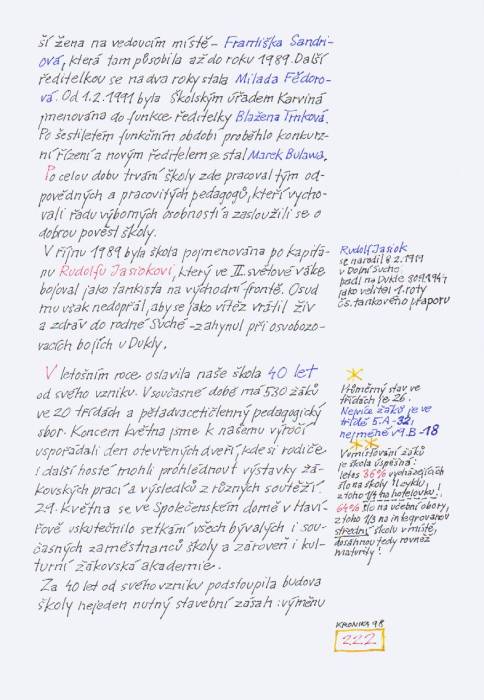 ší žena na vedoucím místě - Františka Sandri-
ová, která tam působila až do roku 1989. Další
ředitelkou se na dva roky stala Milada Fědoro-
vá. Od 1.2.1991 byla školským úřadem Karviná
jmenována do funkce ředitelky Blažena Trnková.
Po šestiletém funkčním období proběhlo konkurz-
ní řízení a novým ředitelem se stal Marek Bulawa.
Po celou dobu trvání školy zde pracoval tým od-
povědných a pracovitých pedagogů, kteří vycho-
vali řadu výborných osobností a zasloužili se o
dobrou pověst školy.
V říjnu 1989 byla škola pojmenována po kapitá-
nu Rudolfu Jasiokovi, který ve II. světové válce
bojoval jako tankista na východní frontě. Osud
mu však nedopřál, aby se jako vítěz vrátil živ
a zdráv do rodné Suché - zahynul při osvobozo-
vacích bojích u Dukly.
Rudolf Jasiok
se narodil 8.2.1919
v Dolní Suché
padl na Dukle
jako velitel 1. roty
čs. tankového praporu
V letošním roce oslavila naše škola 40 let
od svého vzniku. V současné době má 530 žáků
ve 20 třídách a pětadvacetičlenný pedagogický
sbor. Koncem května jsme k našemu výročí
uspořádali den otevřených dveří, kde si rodiče
i další hosté mohli prohlédnout výstavky žá-
kovských prací a výsledků z různých soutěží.
29. května se ve Společenském domě v Haví-
řově uskutečnilo setkání všech bývalých i sou-
časných zaměstnanců školy a zároveň i kul-
turní žákovská akademie.
Za 40 let od svého vzniku podstoupila budova
školy nejeden nutný stavební zásah: výměnu
Průměrný stav ve
třídách je 26.
Nejvíce žáků je ve
třídě 5.A - 32,
nejméně v 9.B - 18
V umisťování žáků
je škola úspěšná:
letos 36% vycházejících
šlo na školy
z toho 1/4 na hotelovku!
64% šlo na učební obory,
z toho 1/3 na integrovanou
střední školu v místě,
dosáhnou tedy rovněž
maturity!
KRONIKA 98
222